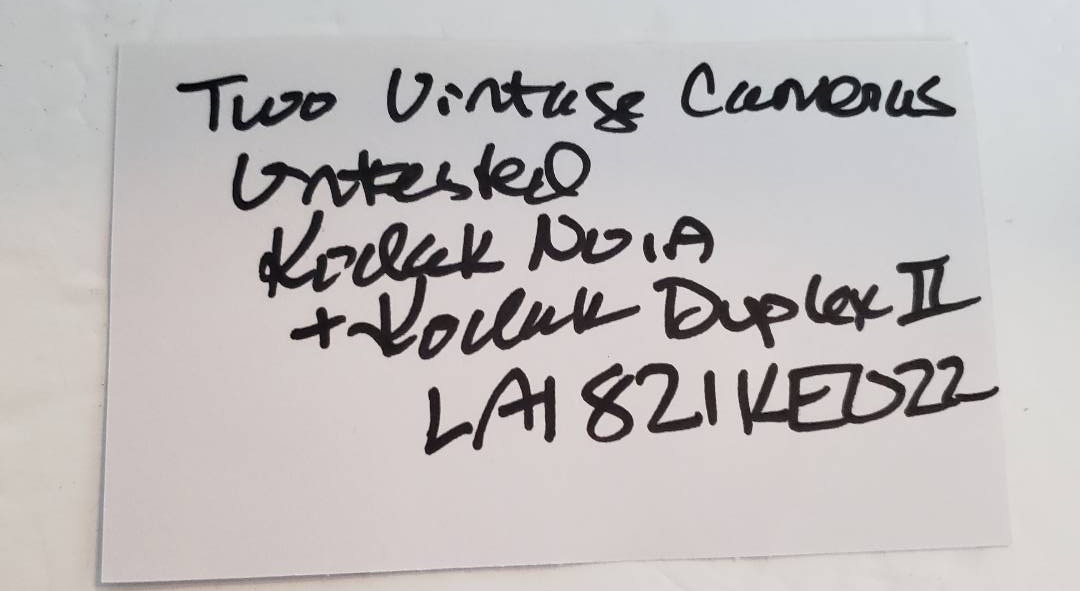 Two Vintage Cameras
Untested
Kodak No 1A
+ Kodak Duplex II
LA1821KEO22